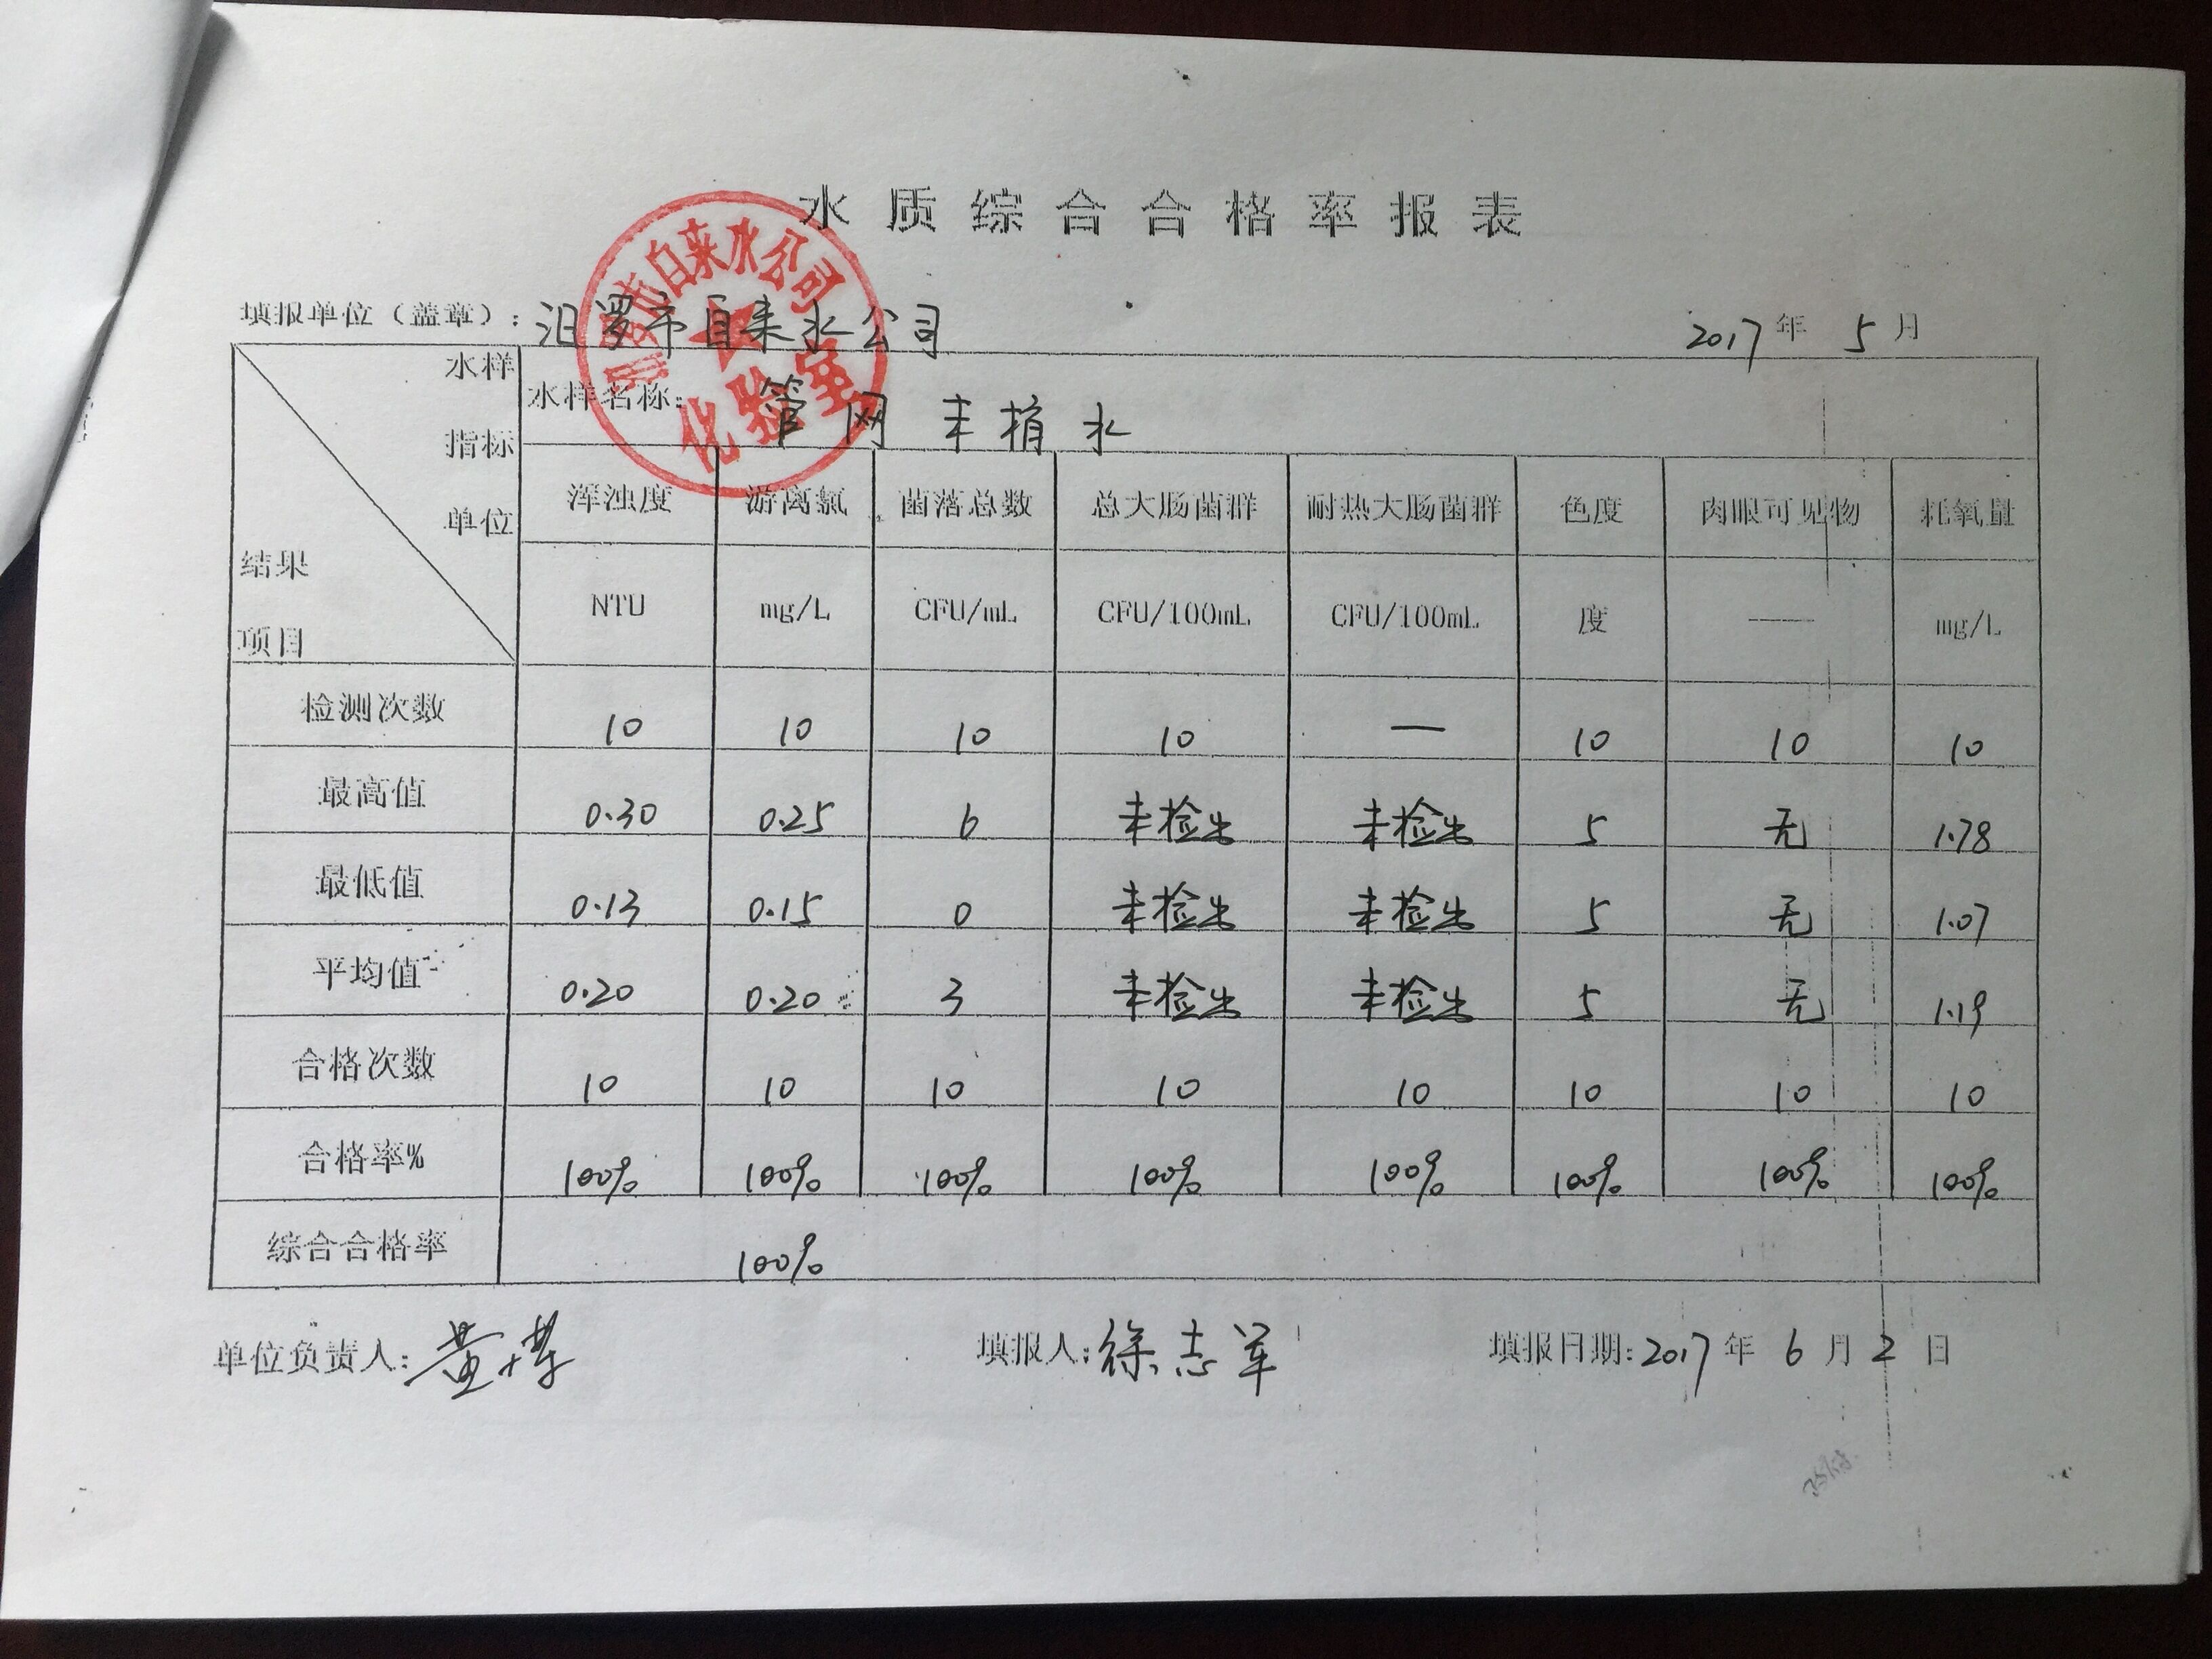 水质综合合格率报表
汨罗市自来水公司
化验室
填报单位（盖章）：汨罗市自来水公司 2017年 5月
水样 水样名称：管网末梢水
指标 浑浊度 游离氯 菌落总数 总大肠菌群 耐热大肠菌群 色度 肉眼可见物 耗氧量
单位 NTU mg/L CFU/mL CFU/100mL CFU/100mL 度 —— mg/L
结果
项目
检测次数 10 10 10 10 — 10 10 10
最高值 0.30 0.25 6 未检出 未检出 5 无 1.78
最低值 0.13 0.15 0 未检出 未检出 5 无 1.07
平均值 0.20 0.20 3 未检出 未检出 5 无 1.19
合格次数 10 10 10 10 10 10 10 10
合格率% 100% 100% 100% 100% 100% 100% 100% 100%
综合合格率 100%
单位负责人： 填报人：徐志军 填报日期：2017年 6月 2日